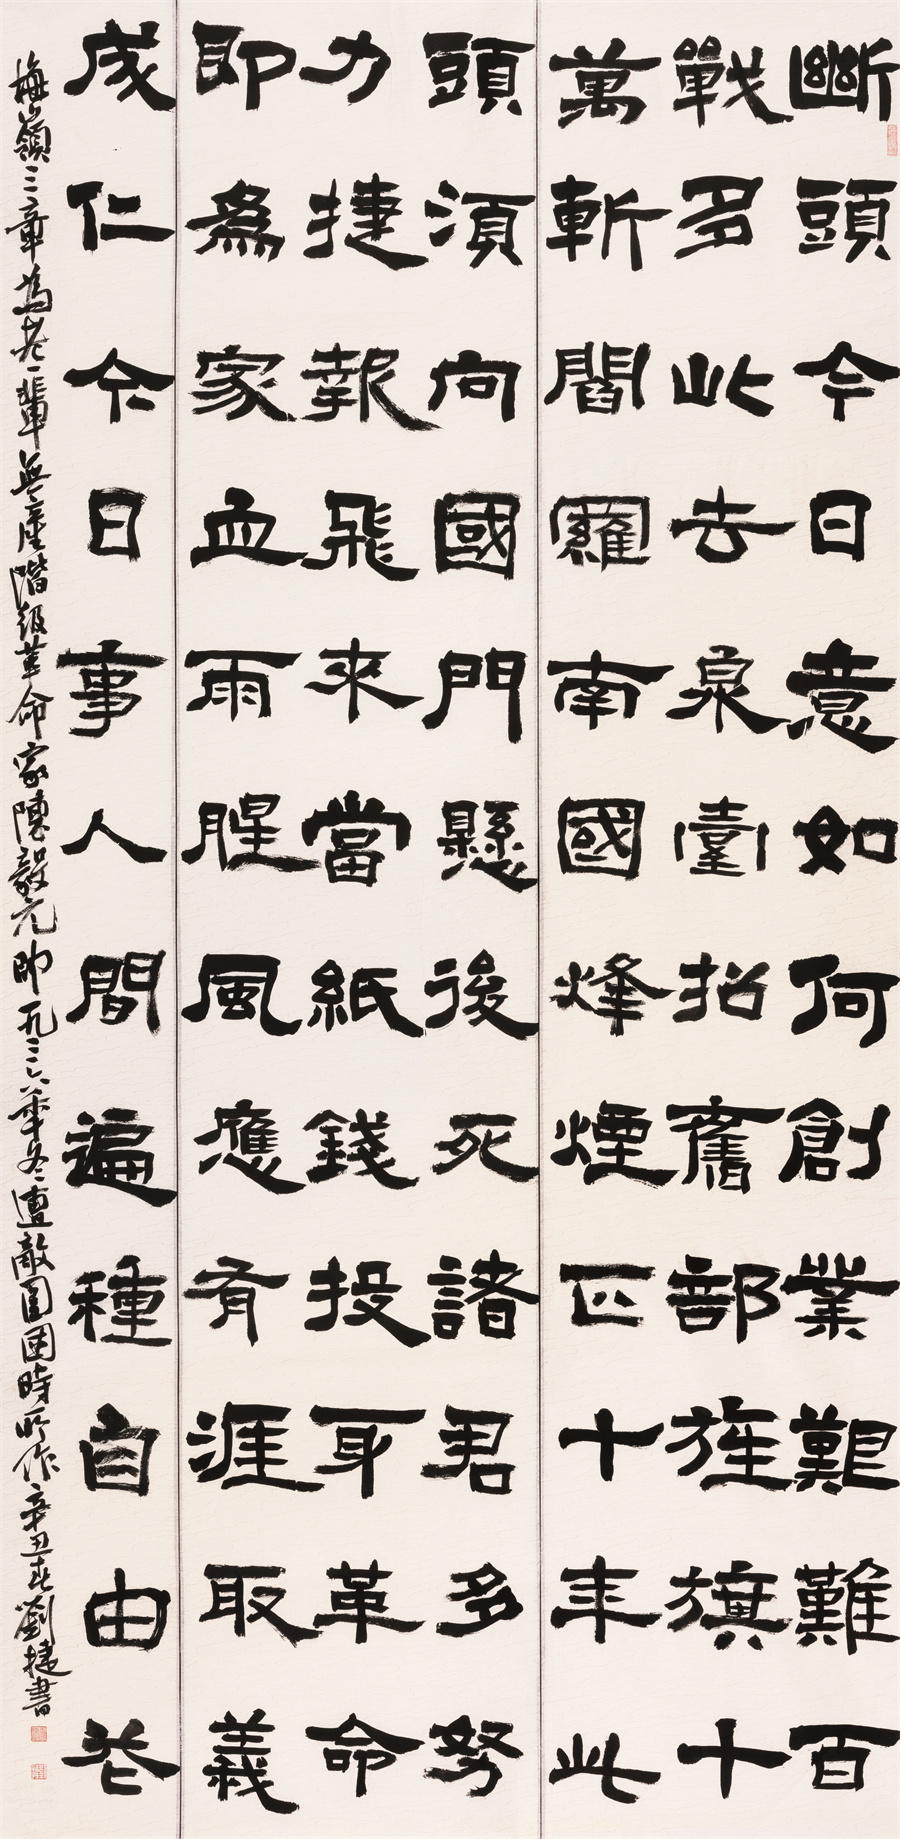 斷頭今日意如何創業艱難百
戰多此去泉臺招舊部旌旗十
萬斬閻羅南國烽煙正十年此
頭須向國門懸後死諸君多努
力捷報飛來當紙錢投身革命
即為家血雨腥風應有涯取義
成仁今日事人間遍種自由花
梅嶺三章為老一輩無產階級革命家陳毅元帥一九三六年冬遭敵圍困時所作辛丑春劉捷書